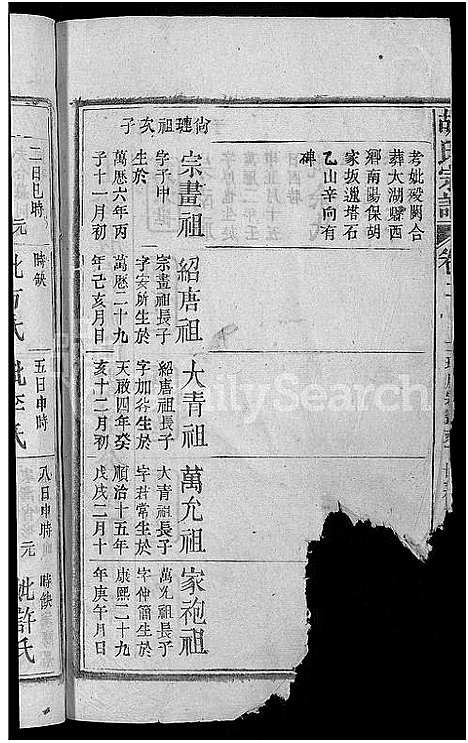 胡氏宗譜
卷二
考妣歿闕合
葬太湖縣西
鄉南陽保胡
家坂邊塔石
乙山辛向有
碑
尙璉祖次子
宗畫祖
字子申
生於
萬歷六年丙
子十一月初
紹唐祖
宗畫祖長子
字安所生於
萬歷二十九
年己亥月日
大青祖
紹唐祖長子
字加谷生於
天啟四年癸
亥十二月初
萬允祖
大青祖長子
字君常生於
順治十五年
戊戌二月十
家袍祖
萬允祖長子
字仲簡生於
康熙二十九
年庚午月日
二日巳時
元
時缺
妣方氏
五日申時
妣李氏
八日申時
元
時缺
妣許氏
FamilySearch